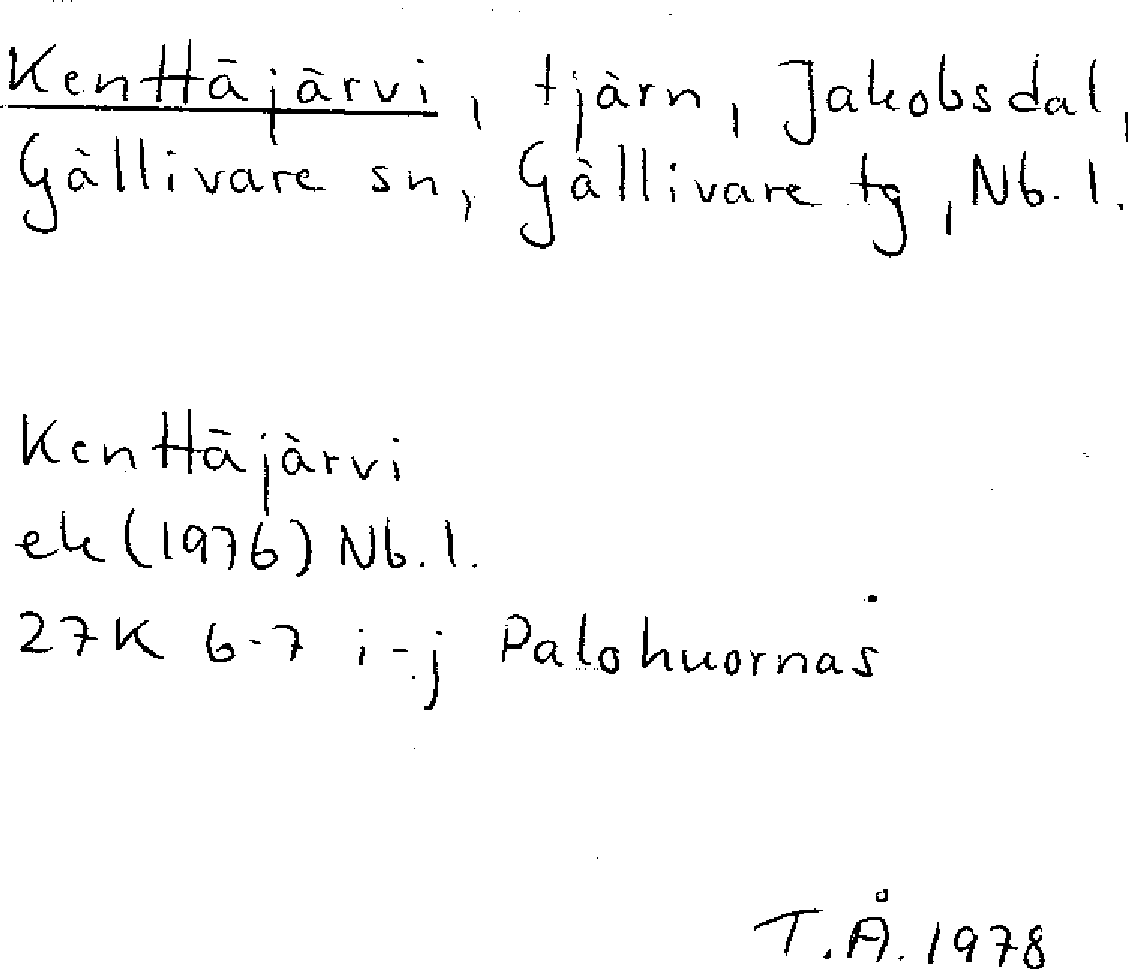 Kenttäjärvi, tjärn, Jakobsdal,
Gällivare sn, Gällivare tg, Nb. l.
Kenttäjärvi
ek (1976) Nb. l.
27K 6-7 i-j Palohuornas
T.Å. 1978